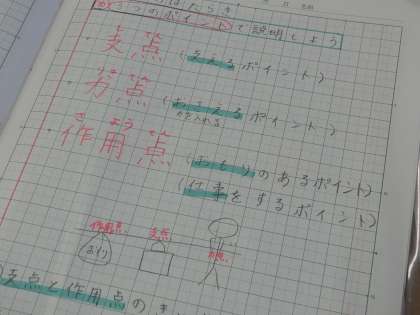 3つのポイントで説明しよう
し てん
支点(支えるポイント)
力点(おさえるポイント)
力を入れる
さ よう てん
作用点(おもりのあるポイント)
(仕事をするポイント)
作用点 支点 力点
おもり
支点と作用点の